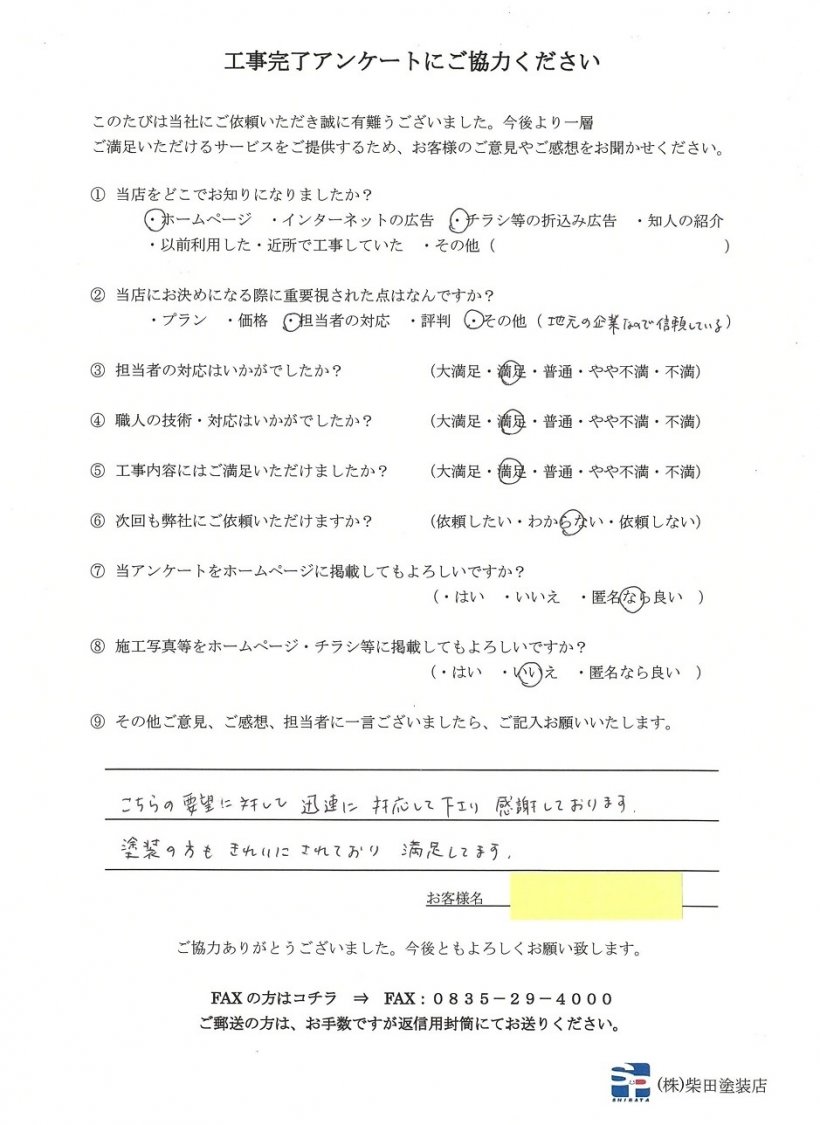 工事完了アンケートにご協力ください
このたびは当社にご依頼いただき誠に有難うございました。今後より一層
ご満足いただけるサービスをご提供するため、お客様のご意見やご感想をお聞かせください。
① 当店をどこでお知りになりましたか？
・ホームページ ・インターネットの広告 ・チラシ等の折込み広告 ・知人の紹介
・以前利用した・近所で工事していた ・その他（ ）
② 当店にお決めになる際に重要視された点はなんですか？
・プラン ・価格 ・担当者の対応 ・評判 ・その他（地元の企業なので信頼している）
③ 担当者の対応はいかがでしたか？ （大満足・満足・普通・やや不満・不満）
④ 職人の技術・対応はいかがでしたか？ （大満足・満足・普通・やや不満・不満）
⑤ 工事内容にはご満足いただけましたか？ （大満足・満足・普通・やや不満・不満）
⑥ 次回も弊社にご依頼いただけますか？ （依頼したい・わからない・依頼しない）
⑦ 当アンケートをホームページに掲載してもよろしいですか？
（・はい ・いいえ ・匿名なら良い ）
⑧ 施工写真等をホームページ・チラシ等に掲載してもよろしいですか？
（・はい ・いいえ ・匿名なら良い ）
⑨ その他ご意見、ご感想、担当者に一言ございましたら、ご記入お願いいたします。
こちらの要望に対して 迅速に 対応して下さり 感謝しております.
塗装の方も きれいに されており 満足してます.
お客様名
ご協力ありがとうございました。今後ともよろしくお願い致します。
FAX の方はコチラ ⇒ FAX：０８３５－２９－４０００
ご郵送の方は、お手数ですが返信用封筒にてお送りください。
SHIBATA (株)柴田塗装店